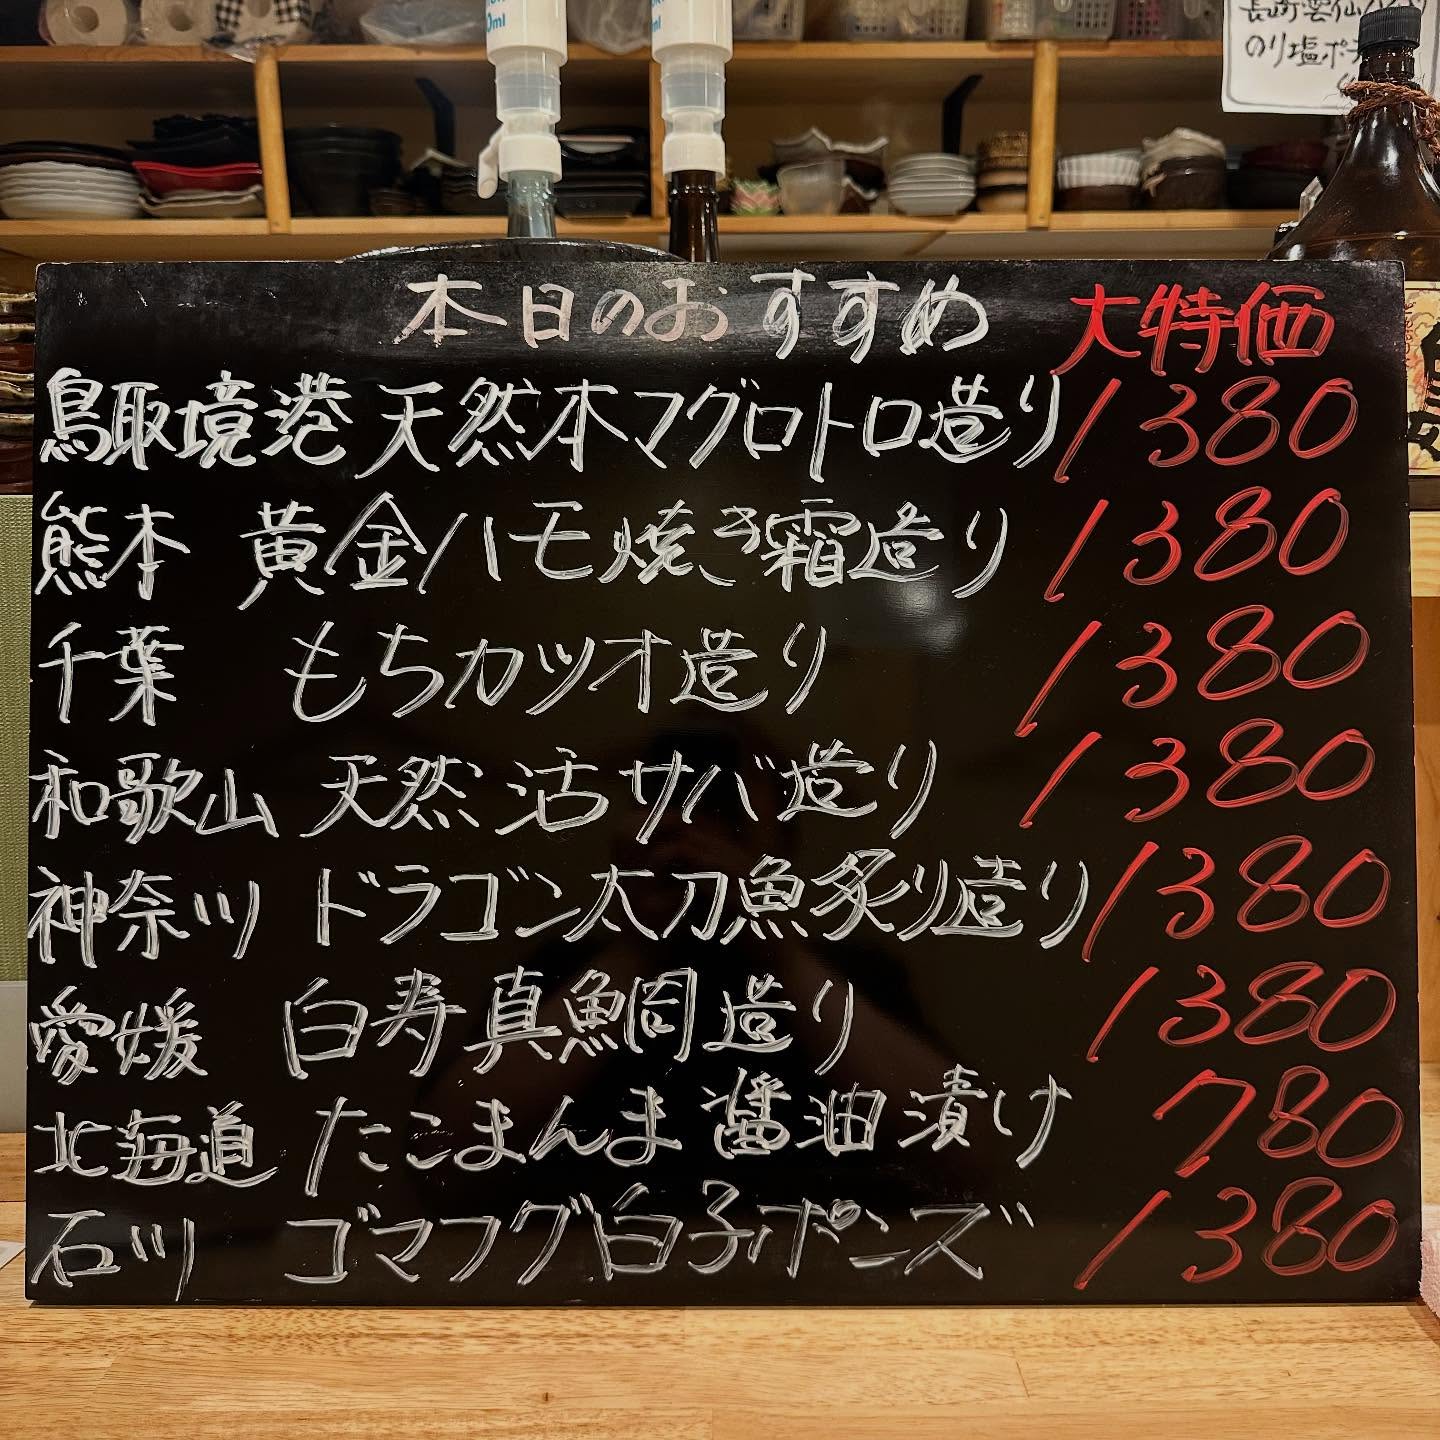 長崎雲仙
のり塩ポテ
本日のおすすめ 大特価
鳥取境港 天然本マグロトロ造り 1380
熊本 黄金ハモ焼き霜造り 1380
千葉 もちカツオ造り 1380
和歌山 天然活サバ造り 1380
神奈川 ドラゴン太刀魚炙り造り 1380
愛媛 白寿真鯛造り 1380
北海道 たこまんま醤油漬け 780
石川 ゴマフグ白子ポンズ 1380